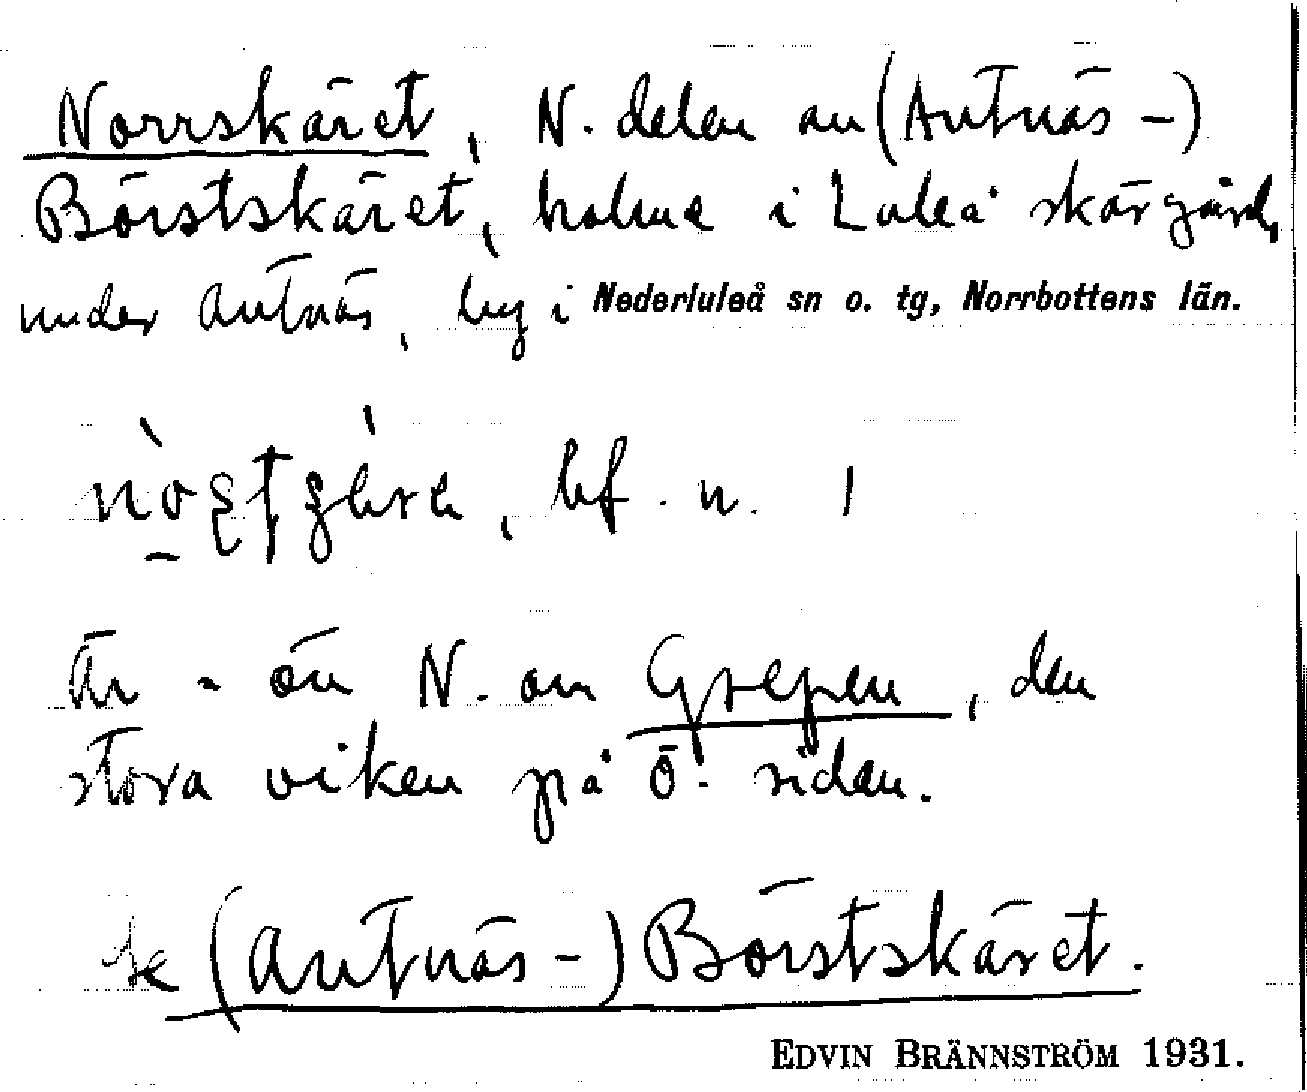 Norrskäret, N. delen av (Antnäs-)
Börstskäret, holme i Luleå skärgård,
under Antnäs, by i Nederluleå sn o. tg, Norrbottens län.
bf. n. 1
Är - ön N. om Grepen, den
stora viken på Ö. sidan.
se (Antnäs-) Börstskäret.
EDVIN BRÄNNSTRÖM 1931.